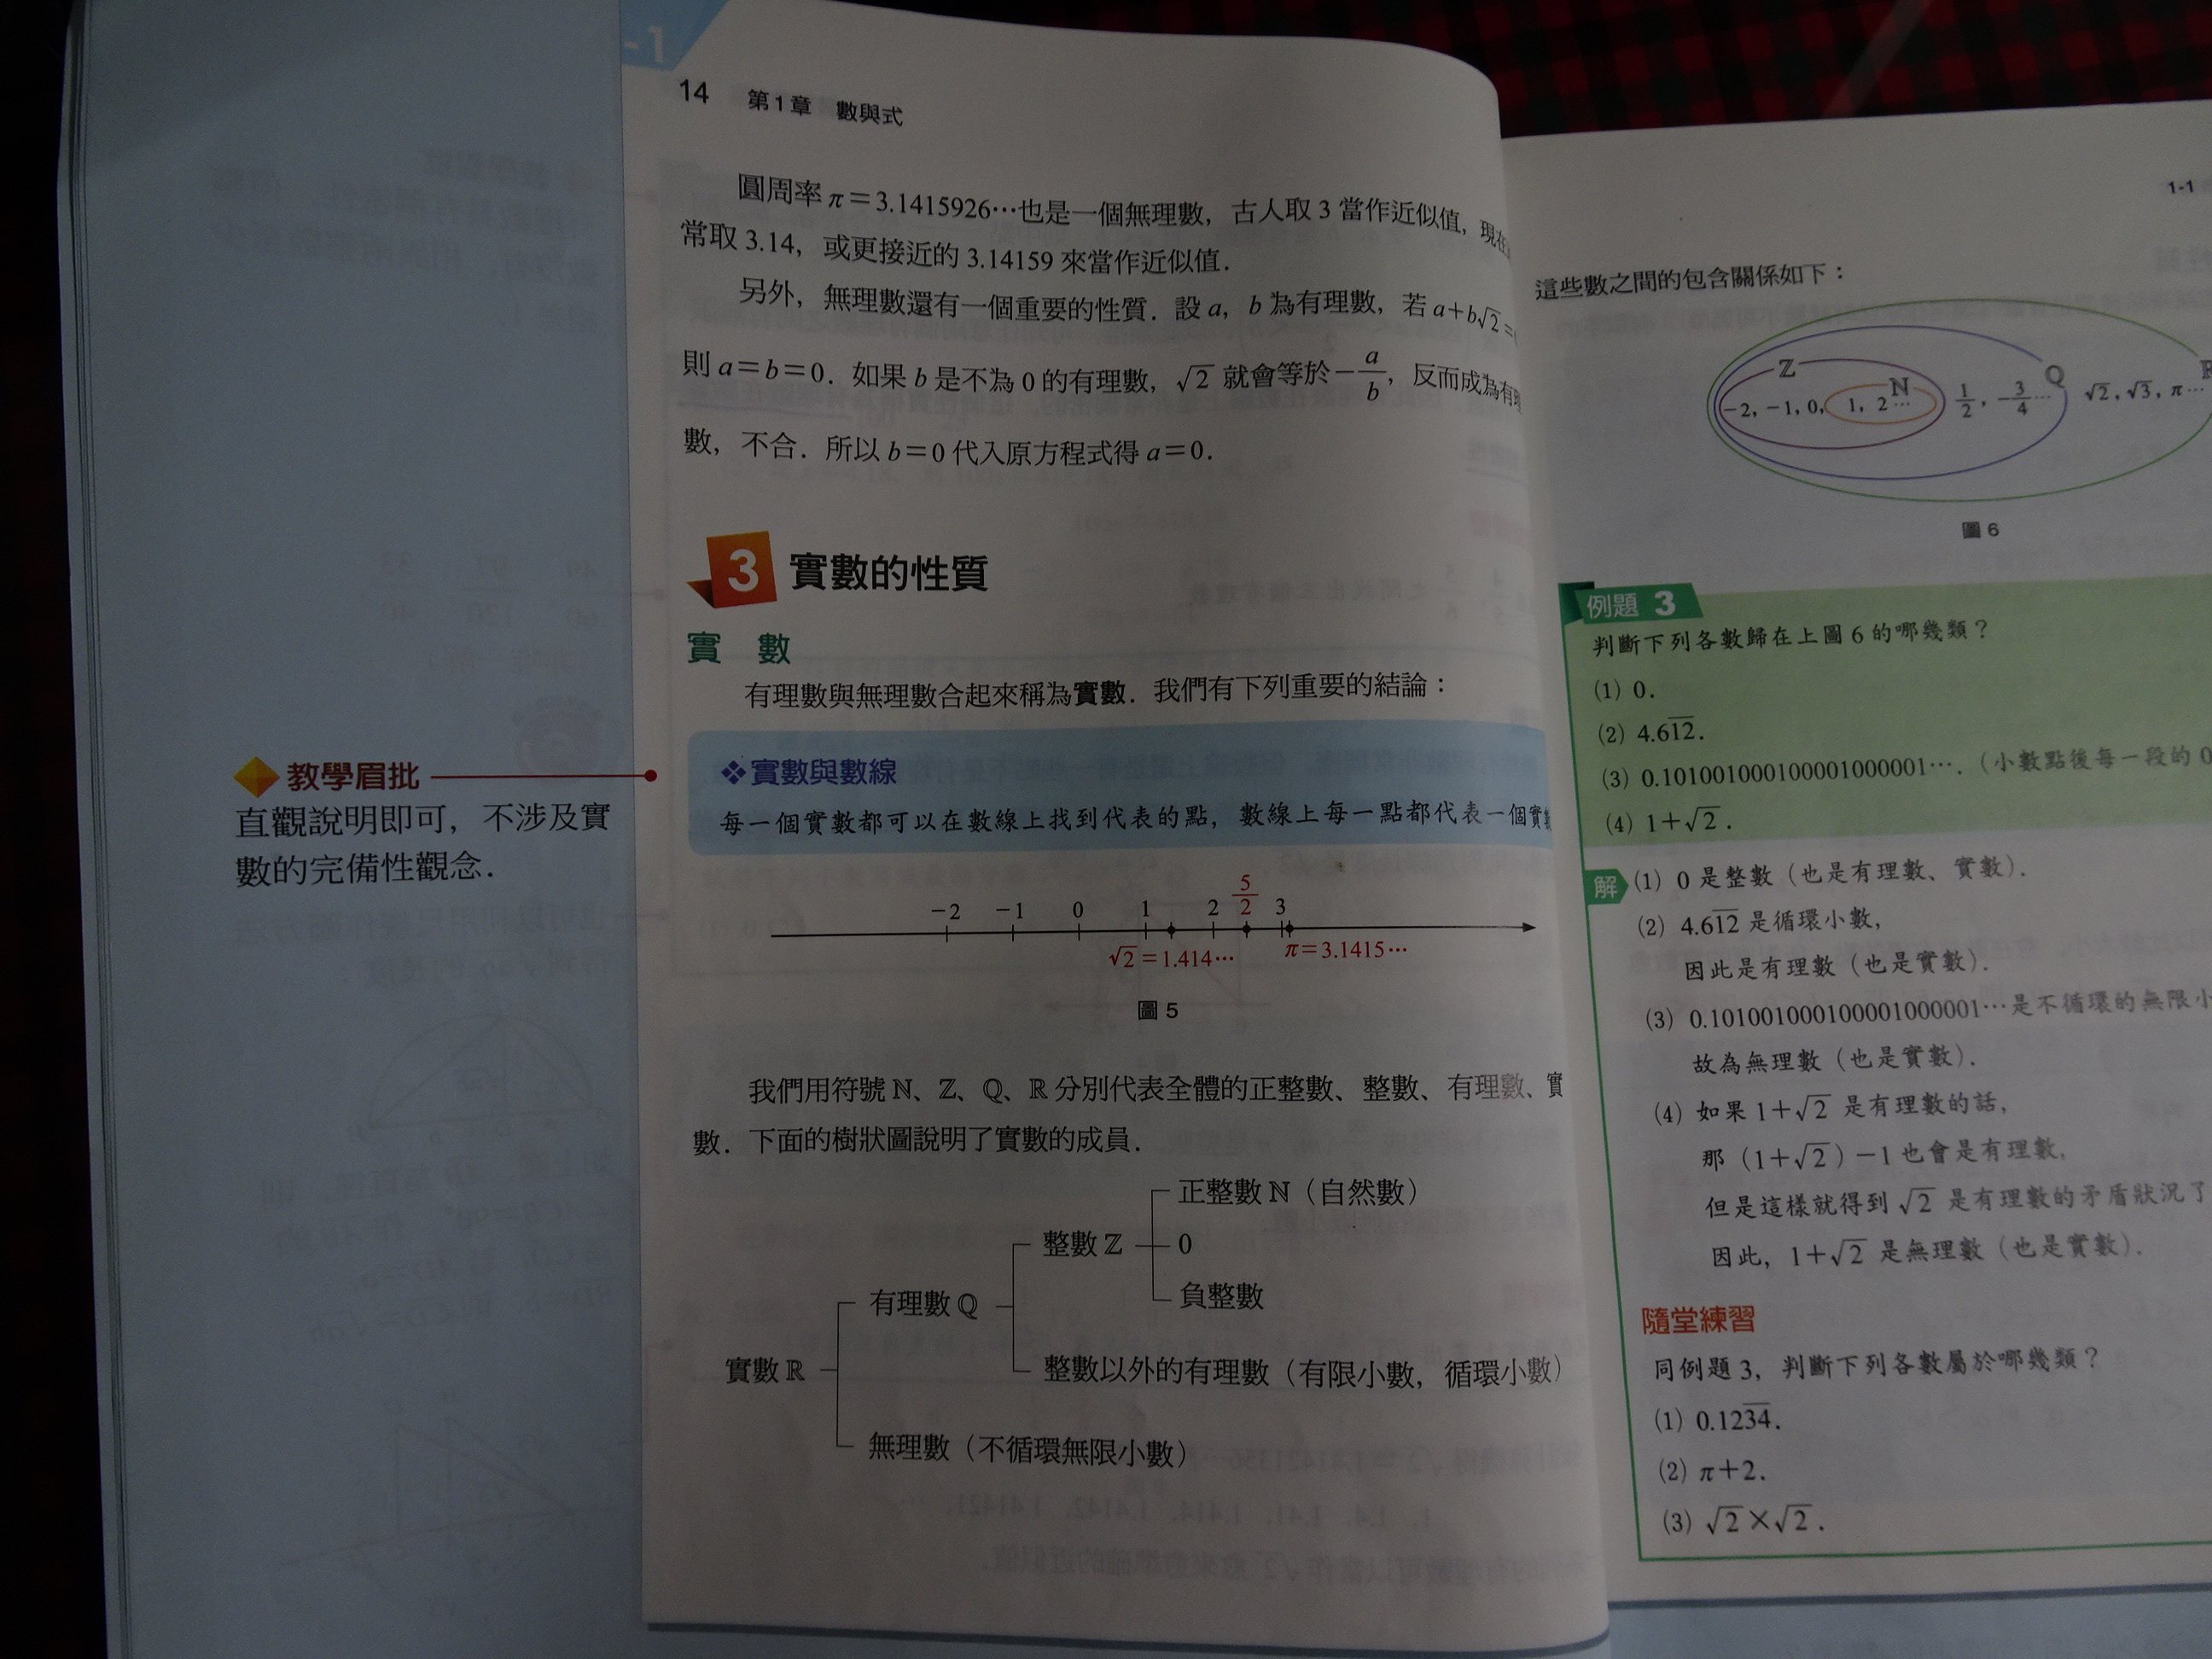 -1
14 第1章 數與式
圓周率 π=3.1415926⋯也是一個無理數，古人取 3 當作近似值，現在
常取 3.14，或更接近的 3.14159 來當作近似值．
另外，無理數還有一個重要的性質．設 a，b 為有理數，若 a+b√2=
則 a=b=0．如果 b 是不為 0 的有理數，√2 就會等於−a/b，反而成為有理
數，不合．所以 b=0 代入原方程式得 a=0．
3 實數的性質
實 數
有理數與無理數合起來稱為實數．我們有下列重要的結論：
❖實數與數線
每一個實數都可以在數線上找到代表的點，數線上每一點都代表一個實數
教學眉批
直觀說明即可，不涉及實
數的完備性觀念．
−2 −1 0 1 2 5/2 3
√2=1.414⋯ π=3.1415⋯
圖 5
我們用符號 ℕ、ℤ、ℚ、ℝ 分別代表全體的正整數、整數、有理數、實
數．下面的樹狀圖說明了實數的成員．
正整數 ℕ（自然數）
整數 ℤ 0
負整數
有理數 ℚ
整數以外的有理數（有限小數，循環小數）
實數 ℝ
無理數（不循環無限小數）
1-1
這些數之間的包含關係如下：
ℤ ℕ ℚ ℝ
−2，−1，0， 1，2⋯ 1/2，−3/4⋯ √2，√3，π⋯
圖 6
例題 3
判斷下列各數歸在上圖 6 的哪幾類？
(1) 0．
(2) 4.61̅2̅．
(3) 0.101001000100001000001⋯．（小數點後每一段的 0
(4) 1+√2．
解 (1) 0 是整數（也是有理數、實數）．
(2) 4.61̅2̅ 是循環小數，
因此是有理數（也是實數）．
(3) 0.101001000100001000001⋯是不循環的無限小
故為無理數（也是實數）．
(4) 如果 1+√2 是有理數的話，
那（1+√2）−1 也會是有理數，
但是這樣就得到 √2 是有理數的矛盾狀況了
因此，1+√2 是無理數（也是實數）．
隨堂練習
同例題 3，判斷下列各數屬於哪幾類？
(1) 0.123̅4̅．
(2) π+2．
(3) √2×√2．